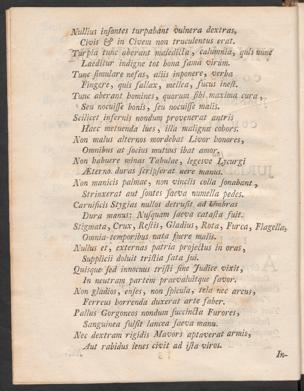 Nullius insontes turpabant vulnera dextras,
Civis & in Civem non truculentus erat.
Turpia tunc aberant maledicta, calumnia, quis nunc
Laeditur indigne tot bona fama virûm.
Tunc simulare nefas, aliis inponere, verba
Fingere, quis fallax, mellea, fucus inest.
Tunc aberant homines, quorum sibi maxima cura,
Seu nocuisse bonis, seu nocuisse malis.
Scilicet infernis nondum provenerat antris
Haec metuenda lues, illa maligna cohors.
Non malus alternos mordebat Livor honores,
Omnibus at socius mutuus ibat amor.
Non habuere minas Tabulae, legesve Lycurgi
Æterno duras scripserat aere manus.
Non manicis palmae, non vinclis colla sonabant,
Strinxerat aut sontes saeva numella pedes.
Carnificis Stygias nullos detrusit ad umbras
Dura manus: Nusquam saeva catasta fuit.
Stigmata, Crux, Restis, Gladius, Rota, Furca, Flagella,
Omnia temporibus nata fuere malis.
Nullus et, externas patria projectus in oras,
Supplicii doluit tristia fata sui.
Quisque sed innocuus tristi sine Judice vixit,
In neutram partem praevaluitque favor.
Non gladios, enses, non spicula, tela nec arcus,
Ferreus horrenda duxerat arte faber.
Pallus Gorgoneos nondum succincta Furores,
Sanguinea fulsit lancea saeva manu.
Nec dextram rigidis Mavors aptaverat armis,
Aut rabidus lenes civit ad ista viros.
In-